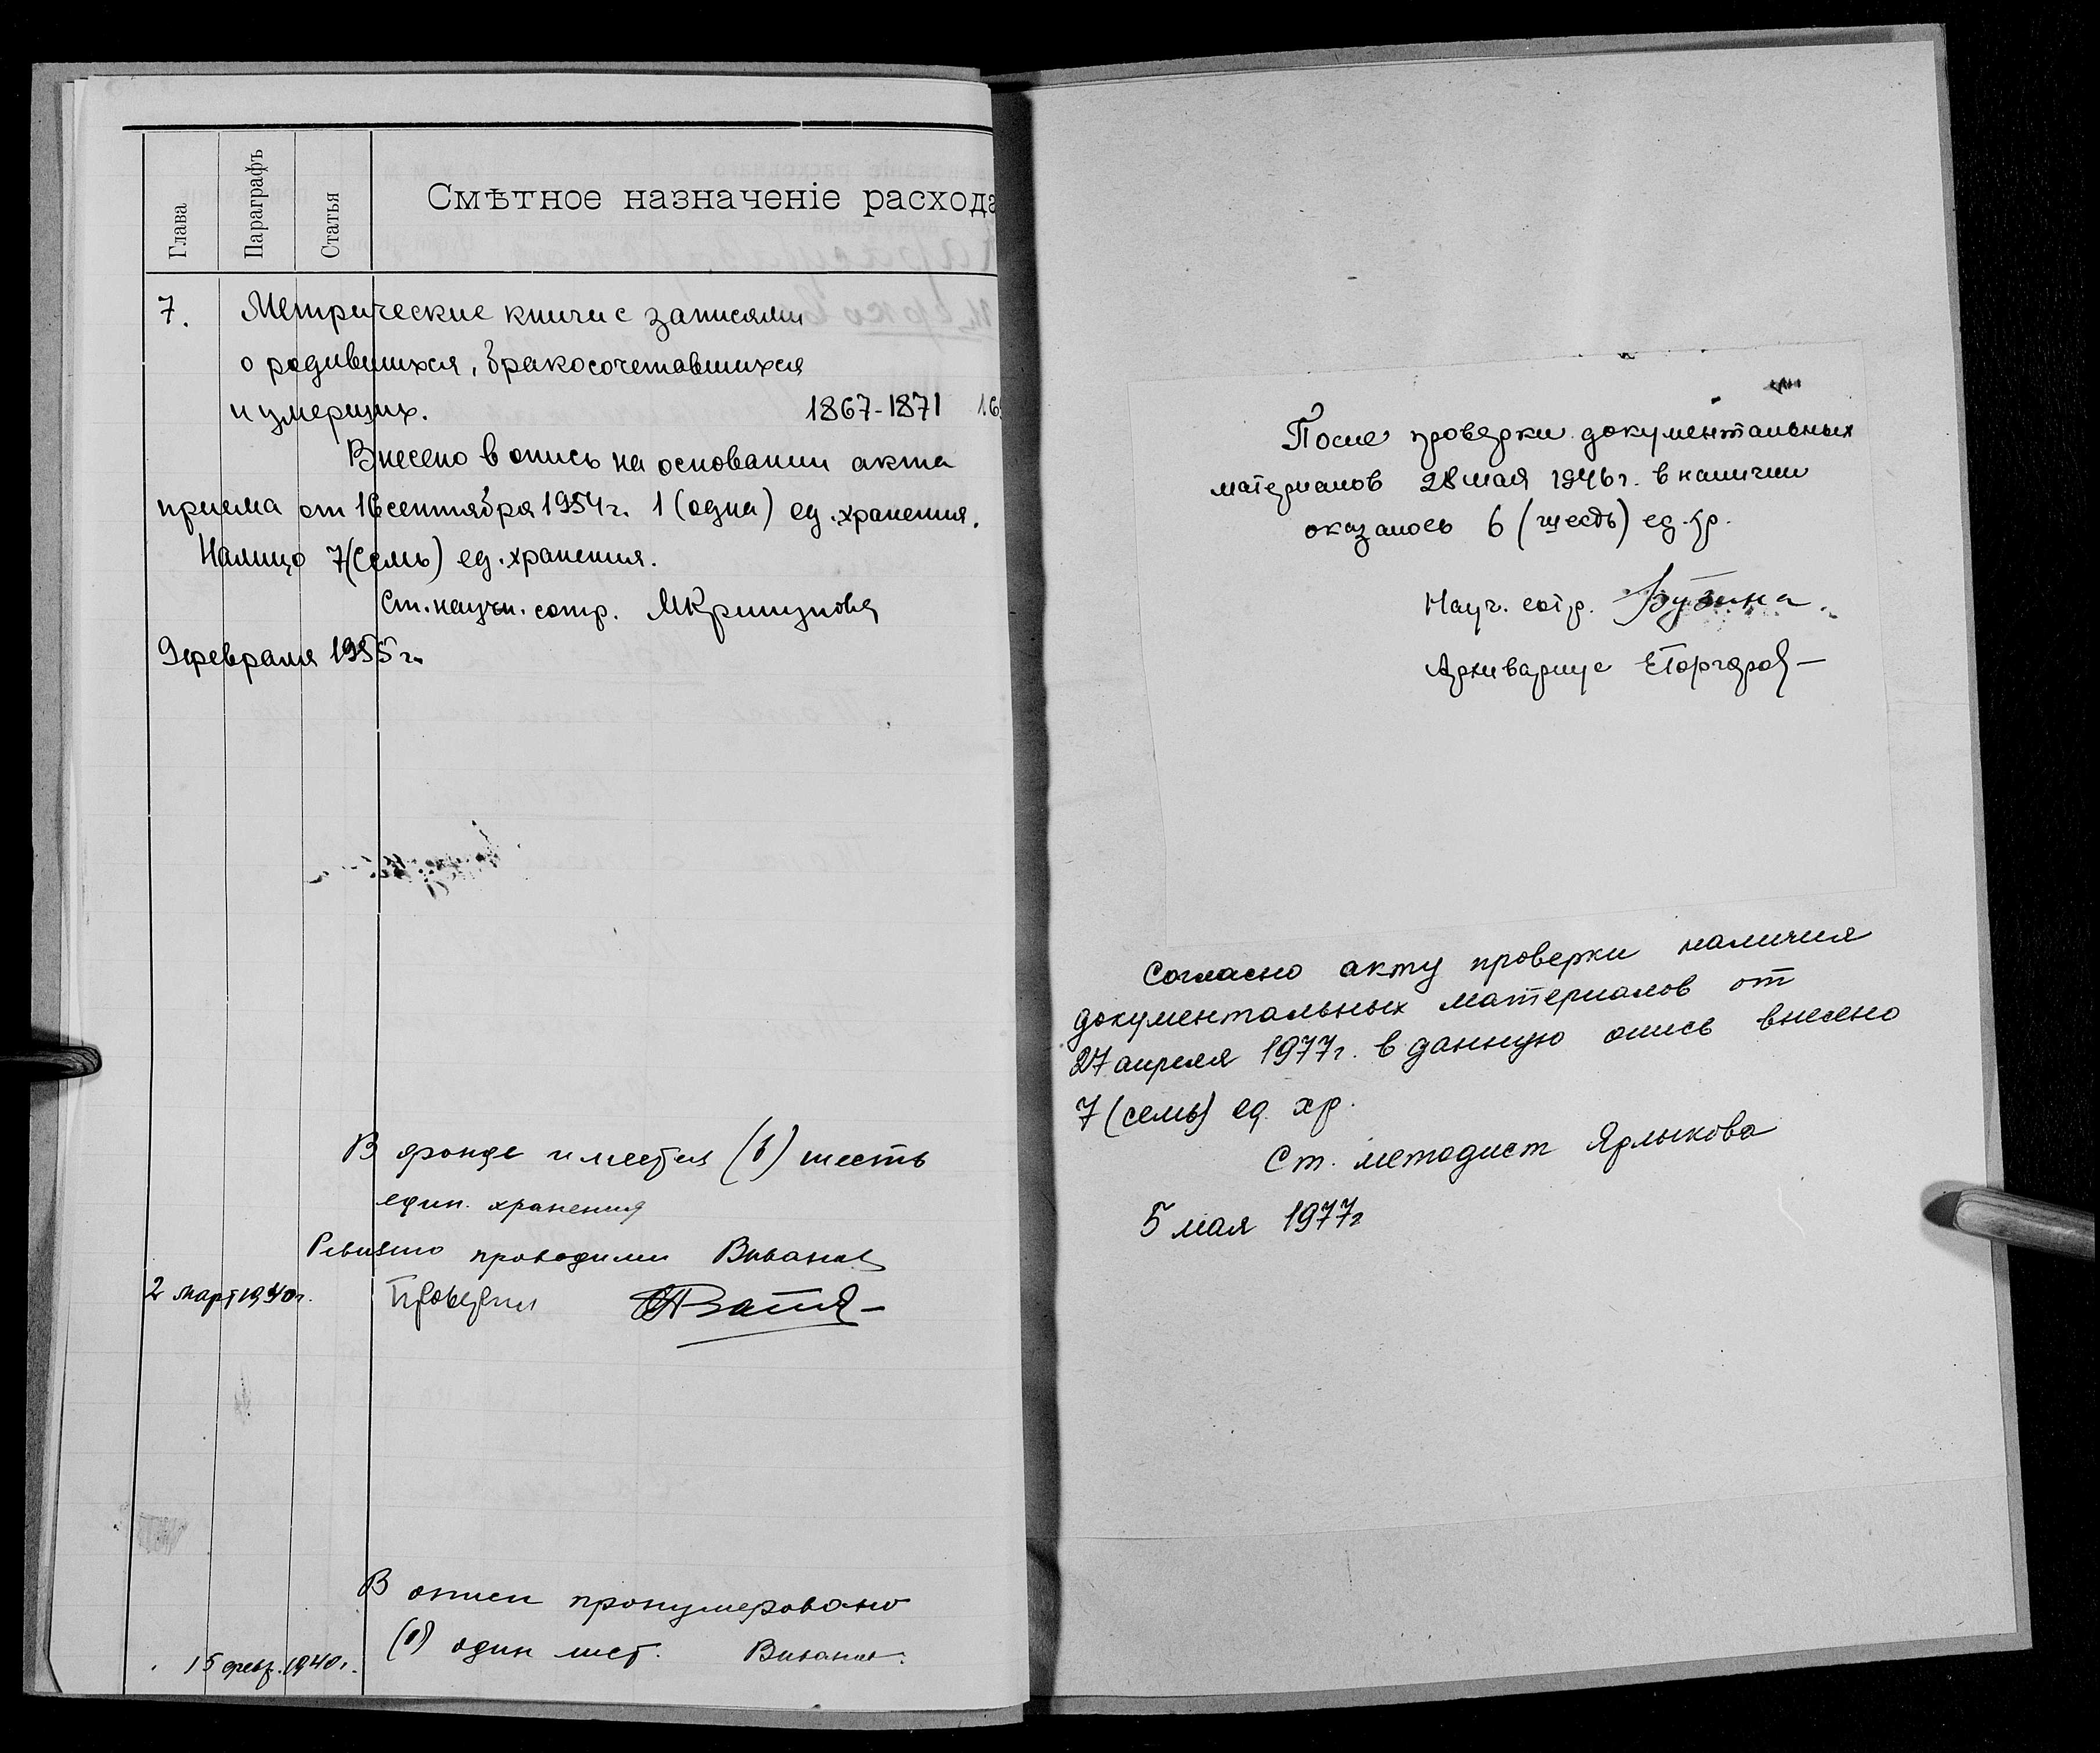 Глава
Параграфъ
Статья
Смѣтное назначеніе расхода
7. Метрические книги с записями
о родившихся, бракосочетавшихся
и умерших. 1867-1871
Внесено в опись на основании акта
приема от 16 сентября 1954 г. 1 (одна) ед. хранения.
Налицо 7 (семь) ед. хранения.
Ст. научн. сотр.
9 февраля 1955 г.
В фонде имеется (6) шесть
един. хранения
Ревизию проводили
2 март 1940 г. Проверил
В описи пронумеровано
(1) один лист.
15 февр. 1940 г.
После проверки документальных
материалов 28 мая 1946 г. в наличии
оказалось 6 (шесть) ед. хр.
Науч. сотр.
Архивариус
Согласно акту проверки наличия
документальных материалов от
27 апреля 1977 г. в данную опись внесено
7 (семь) ед. хр.
Ст. методист Ярлыкова
5 мая 1977 г